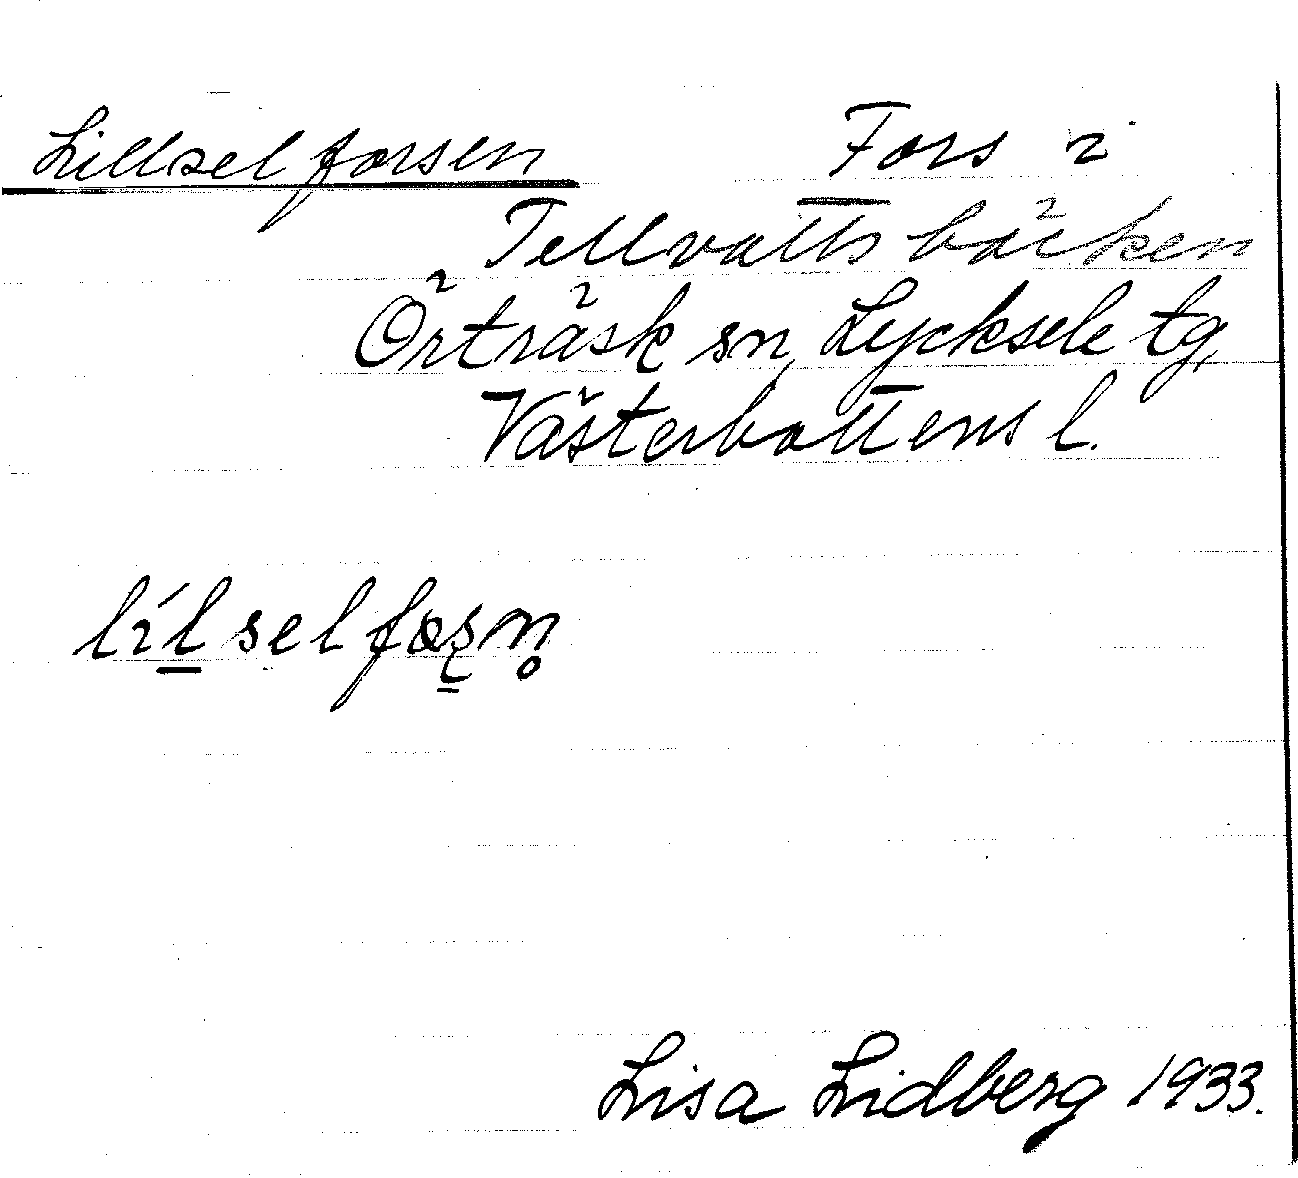 Lillselforsen Fors i
Tellvattsbäcken
Örträsk sn, Lycksele tg,
Västerbottens l.
lílselfoṣn̥
Lisa Lidberg 1933.